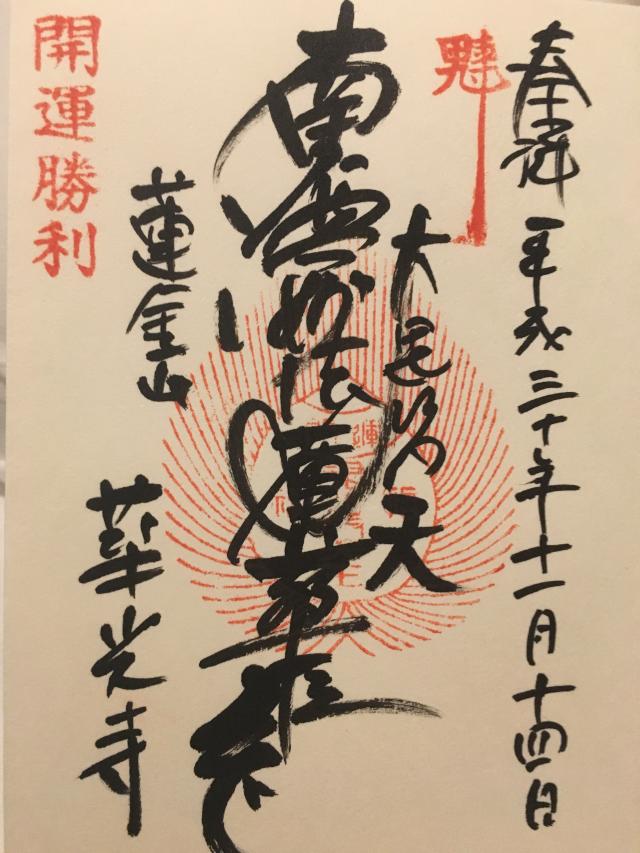 奉拝 平成三十年十一月十四日
魁
大黒福寿天
南無妙法蓮華経
蓮金山
華光寺
開運勝利